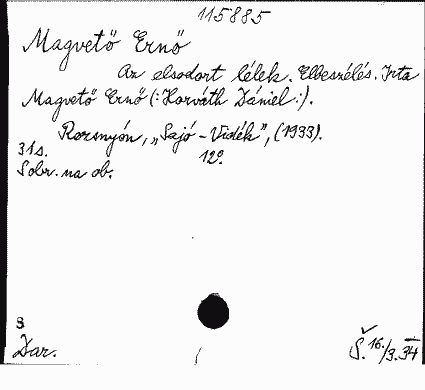 115885
Magvető Ernő
Az elsodort lélek. Elbeszélés. Irta
Magvető Ernő (: Horváth Dániel :).
Rozsnyón, „Sajó-Vidék", (1933).
31s. 12°.
Sobr. na ob.
8
Dar.
Š. 16./3.34